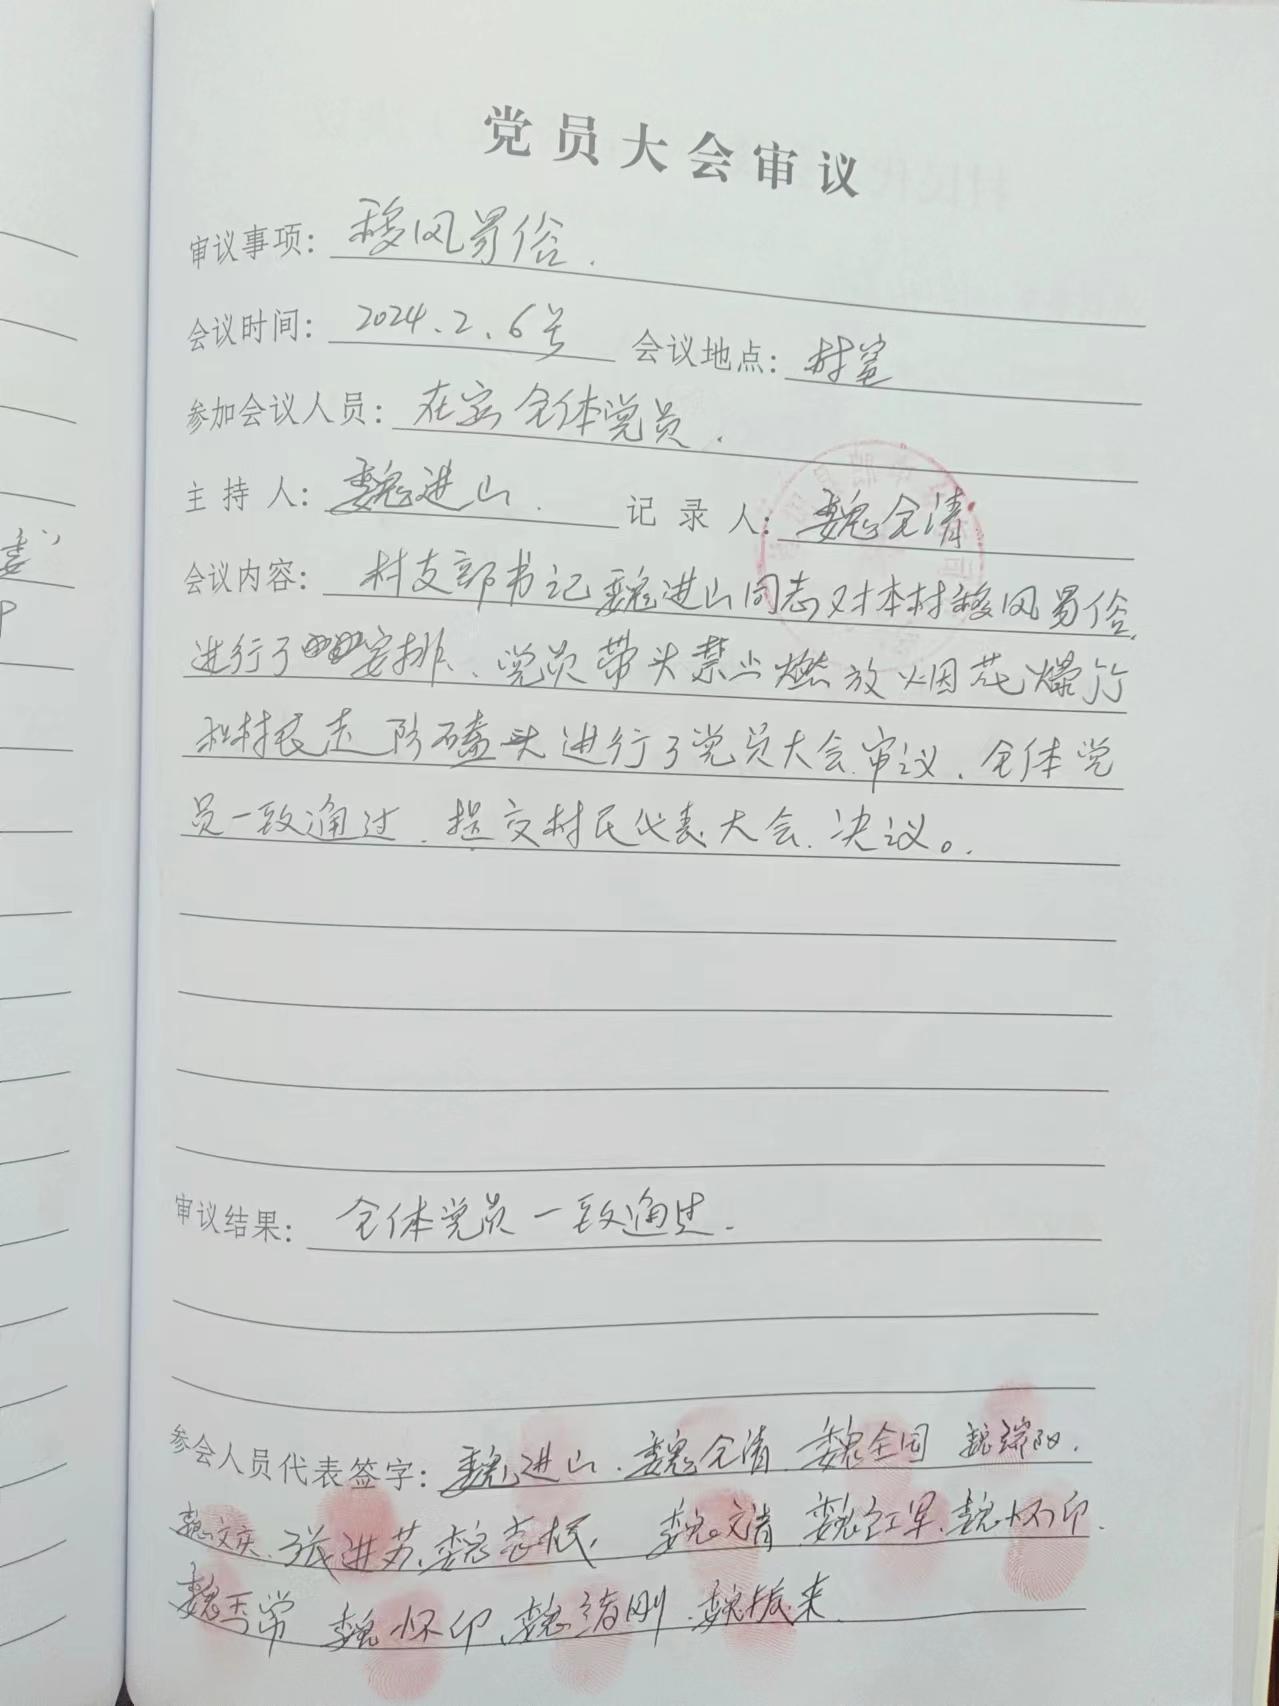 党员大会审议
审议事项：移风易俗.
会议时间：2024.2.6号 会议地点：村室
参加会议人员：在家全体党员.
主持人：魏进山. 记录人：魏全清
会议内容：村支部书记魏进山同志对本村移风易俗,
进行了安排、党员带头禁止燃放烟花爆竹
和村民走阶磕头进行了党员大会审议，全体党
员一致通过，提交村民代表大会.决议。.
审议结果：全体党员一致通过.
参会人员代表签字：魏进山.魏全清 魏全国 魏瑞阳.
魏文庆.张进芳.魏志民, 魏文清 魏红军.魏怀印.
魏玉常 魏怀印.魏绪刚.魏振来.